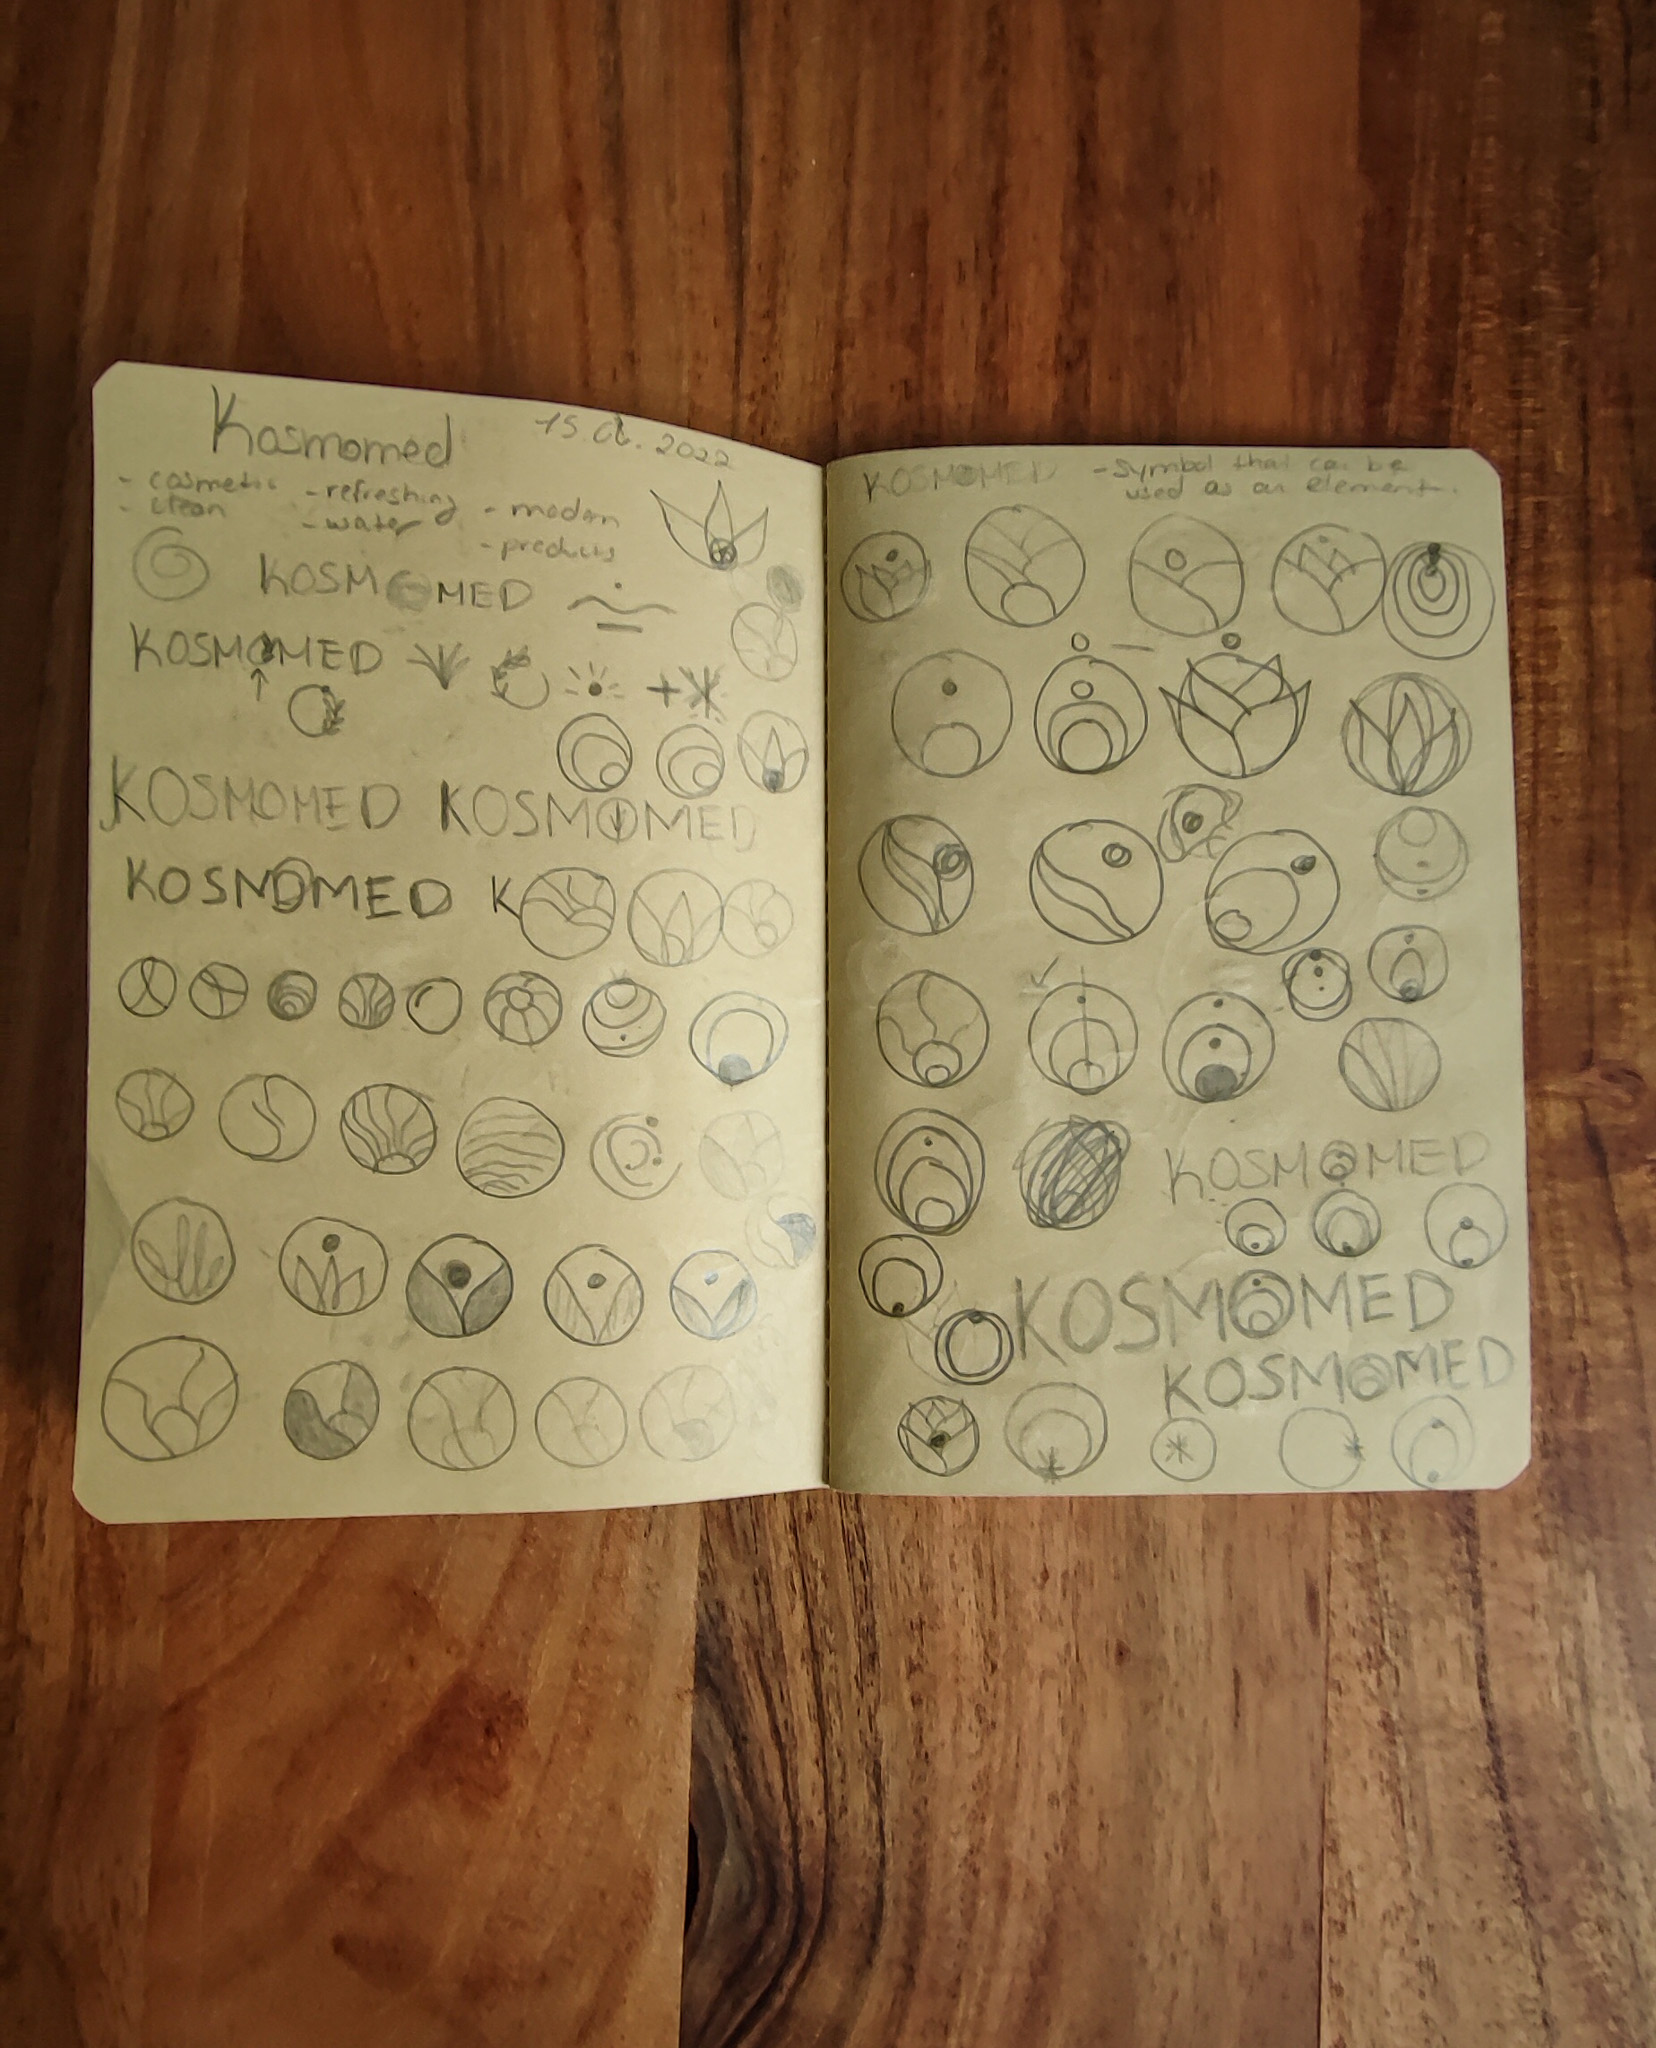 Kosmomed
15.01.2022
- cosmetic
- clean
- refreshing
- water
- modern
- products
KOSMOMED
KOSMOMED
KOSMOMED KOSMOMED
KOSMOMED K
KOSMOMED - symbol that can be
used as an element.
KOSMOMED
KOSMOMED
KOSMOMED